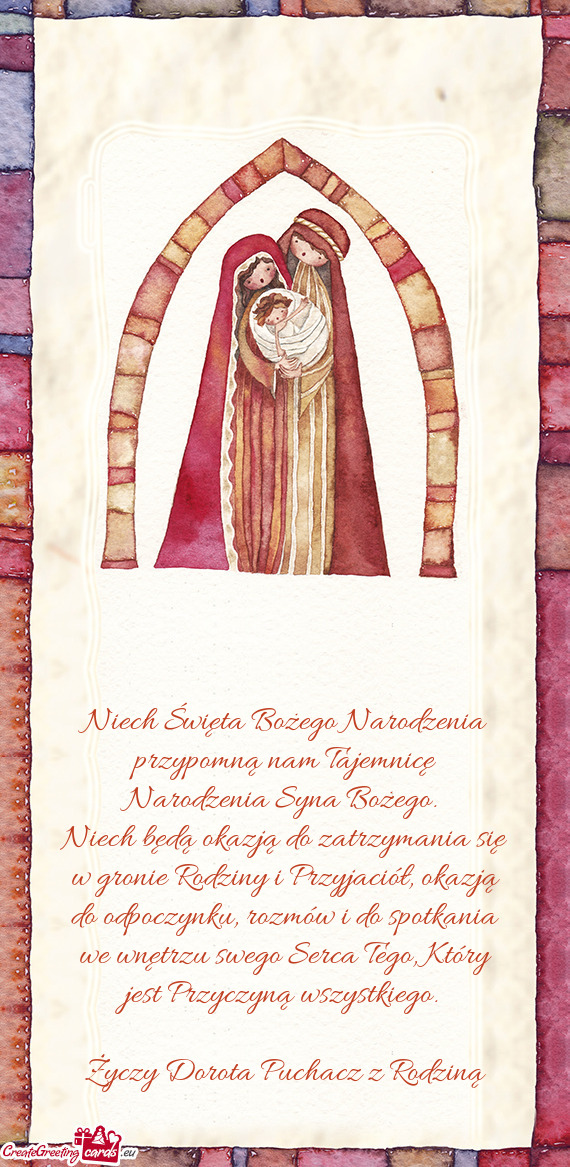 Niech Święta Bożego Narodzenia
przypomną nam Tajemnicę
Narodzenia Syna Bożego.
Niech będą okazją do zatrzymania się
w gronie Rodziny i Przyjaciół, okazją
do odpoczynku, rozmów i do spotkania
we wnętrzu swego Serca Tego, Który
jest Przyczyną wszystkiego.
Życzy Dorota Puchacz z Rodziną
CreateGreeting cards .eu